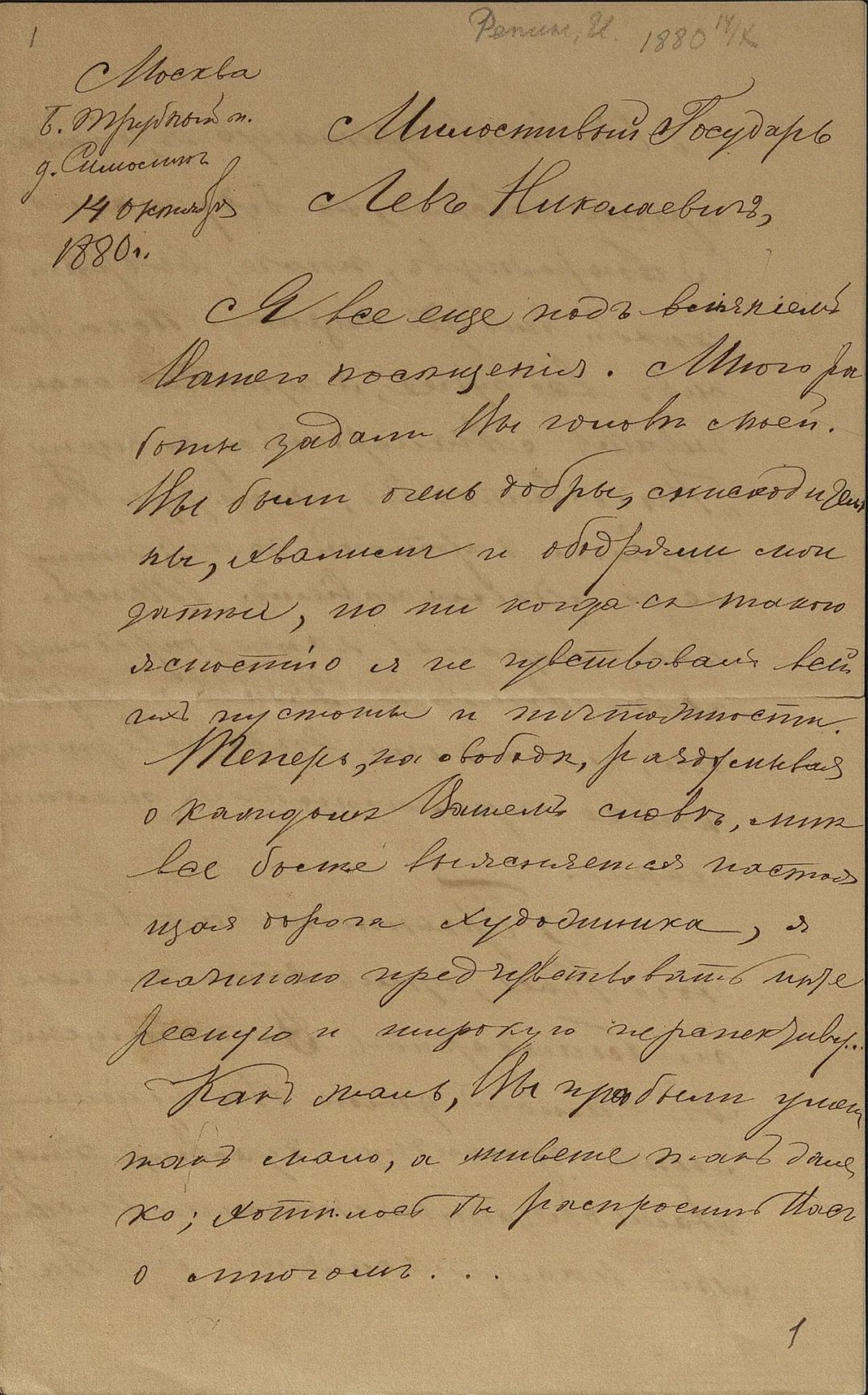 1
Репин, И. 1880 14/X
Москва
Б. Трубный п.
д.
14 октября
1880 г.
Милостивый Государь
Левъ Николаевичъ,
Я все еще подъ вліяніемъ
Вашего посѣщенія. Много ра
боты задали Вы головѣ моей.
Вы были очень добры, снисходитель
ны, хвалили и ободряли мои
затѣи, но ни когда съ такою
ясностію я не чувствовалъ всей
ихъ пустоты и ничтожности.
Теперь, на свободѣ, раздумывая
о каждомъ Вашемъ словѣ, мнѣ
все болѣе выясняется настоя
щая дорога художника, я
начинаю предчувствовать инте
ресную и широкую перспективу...
Какъ жаль, Вы пробыли у меня
такъ мало, а живете такъ дале
ко; хотѣлось бы распросить Васъ
о многомъ...
1